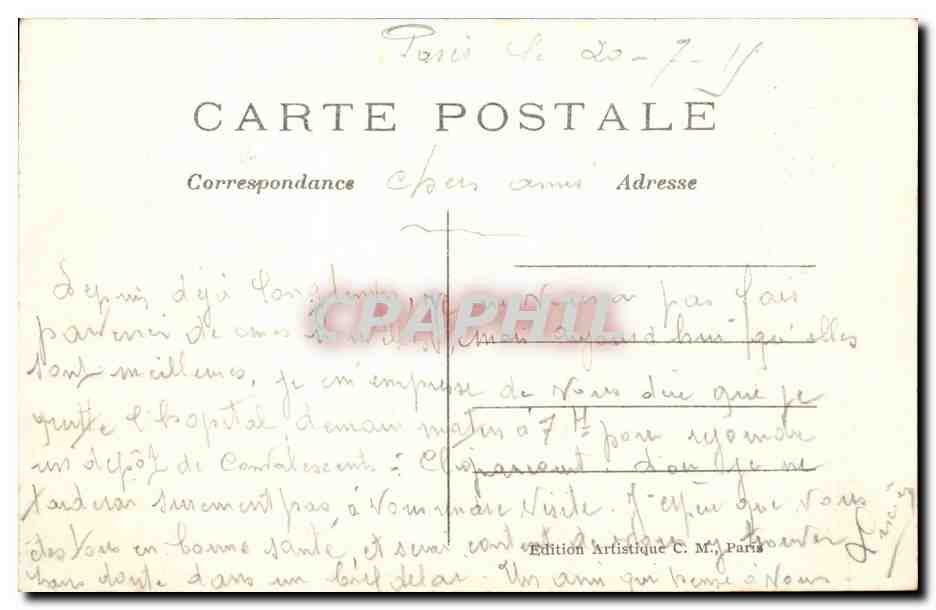 Paris le 20-7-15
CARTE POSTALE
Correspondance Chers amis Adresse
Depuis déjà longtemps, pas fais
parvenir de mes aujourd'hui qu'elles
sont meilleures, je m'empresse de vous dire que je
quitte l'hopital demain matin à 7 H pour rejoindre
un dépôt de Convalescents à Clignancourt. d'ou je ne
tarderai surement pas à vous rendre visite. J'espère que vous
êtes tous en bonne santé, et serai content de vous y trouver
sans doute dans un bref delai. Un ami qui pense à vous.
CPAPHIL
Edition Artistique C. M., Paris